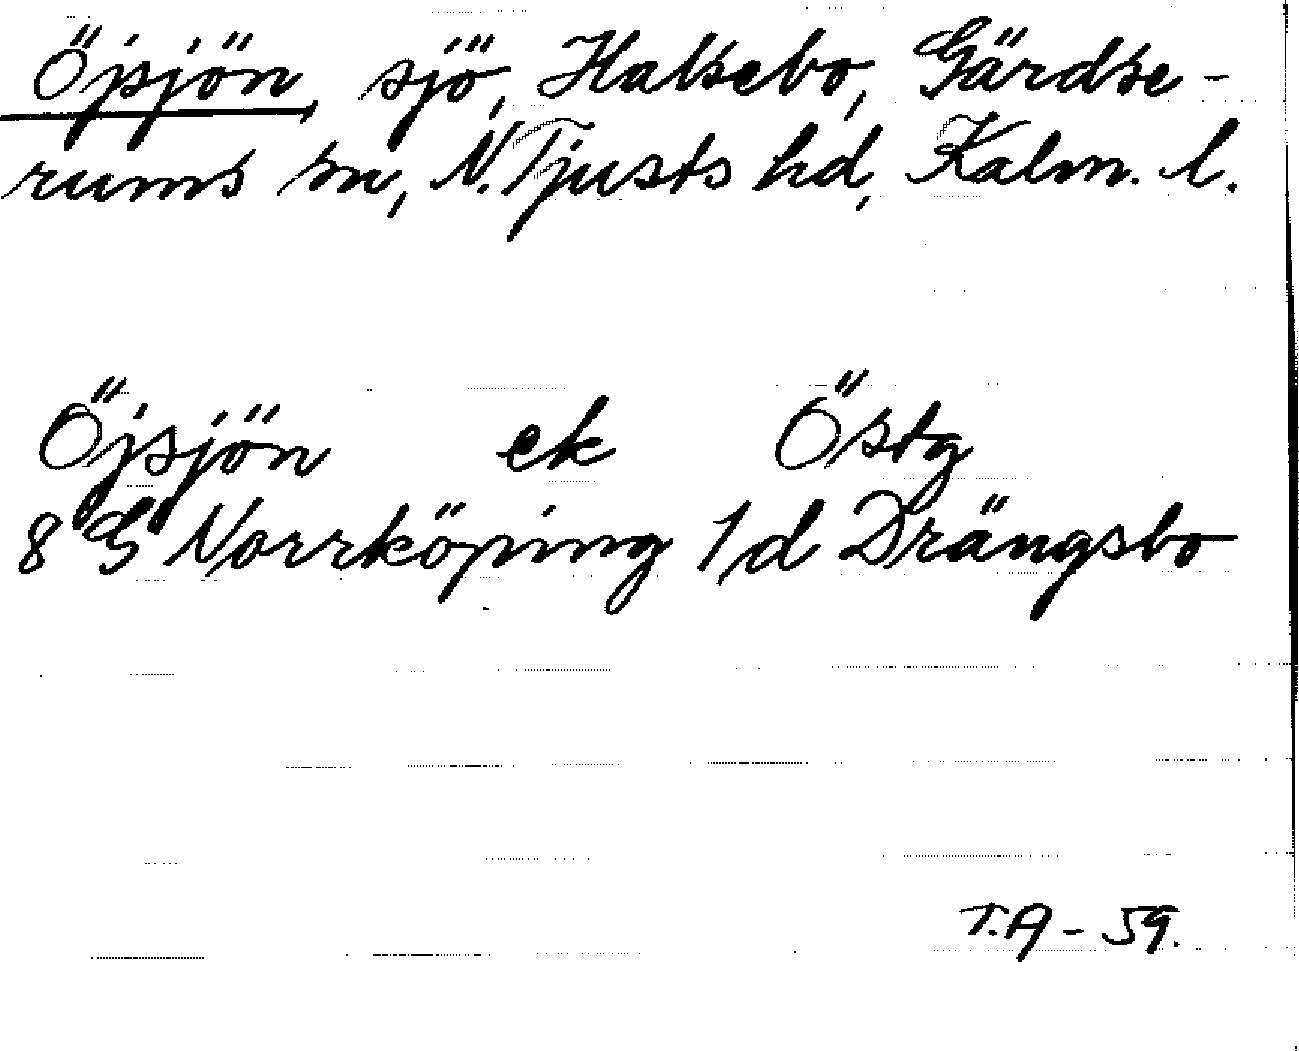 Öjsjön, sjö, Halsebo, Gärdse-
rums sn, N. Tjusts hd, Kalm. l.
Öjsjön ek Östg
8 G Norrköping 1/d Drängsbo
T.A - 59.